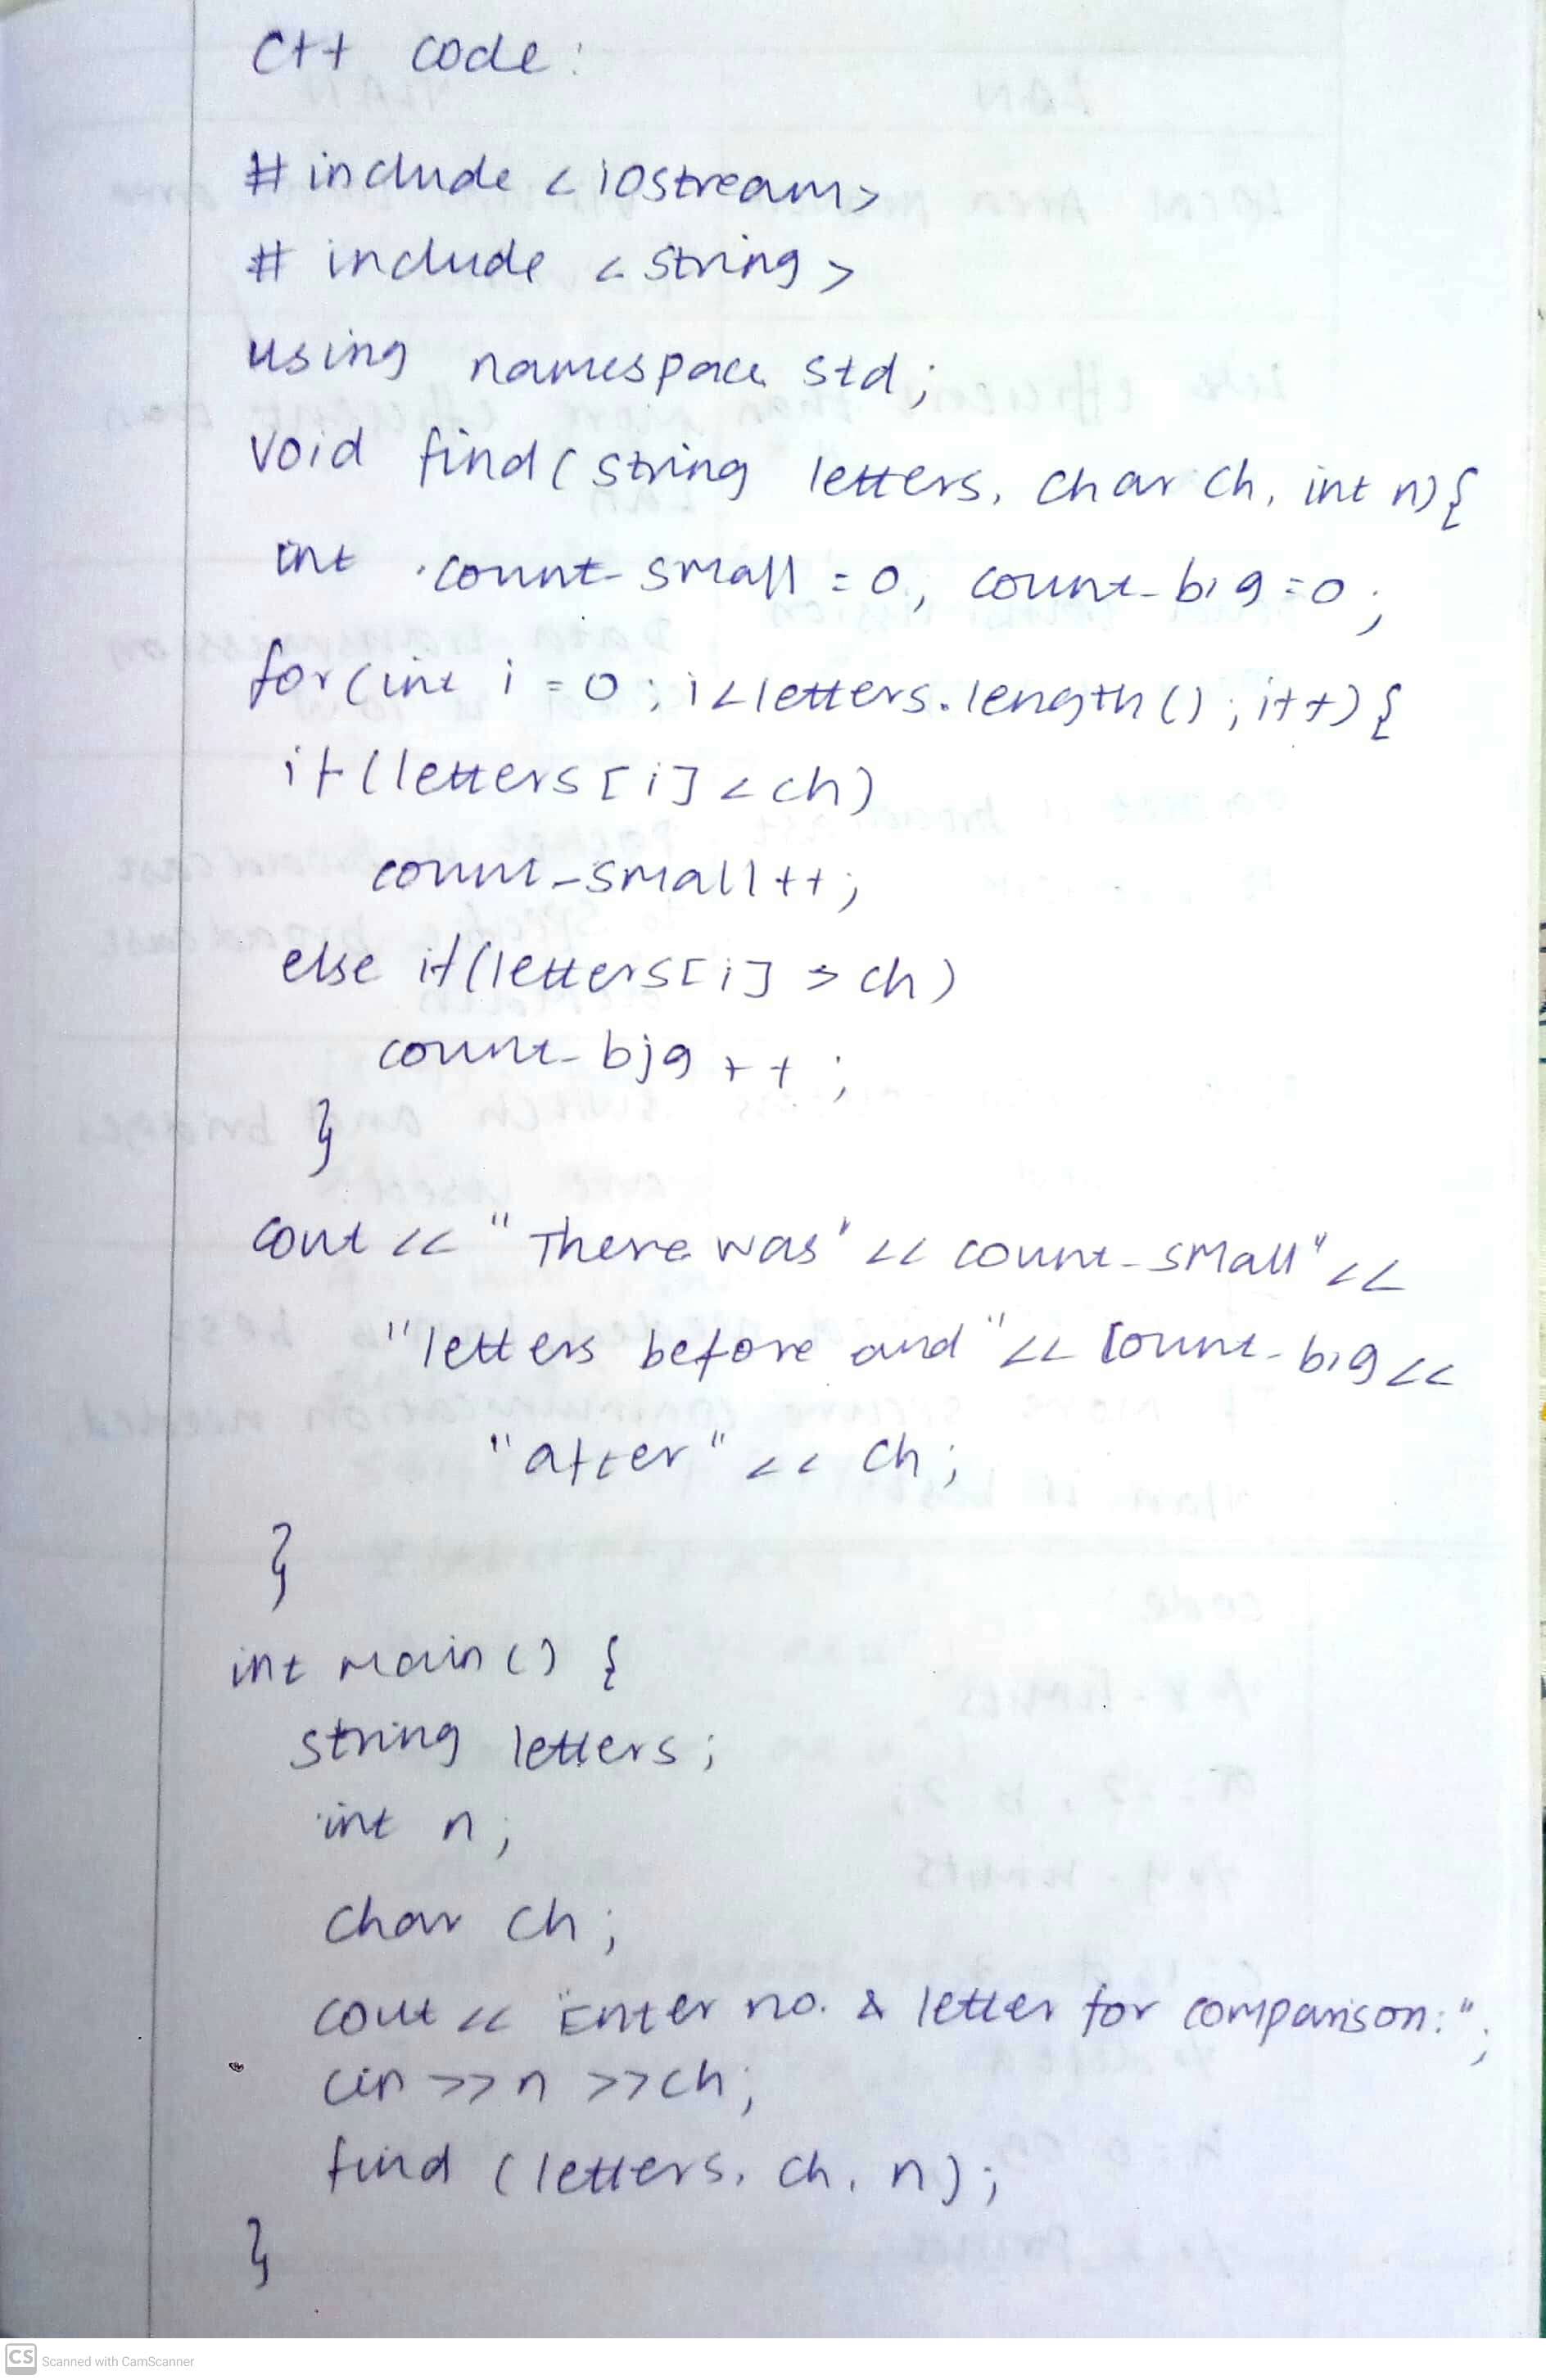 C++ code:
# include <iostream>
# include <string>
using namespace std;
void find(string letters, char ch, int n){
int count_small = 0, count_big = 0;
for(int i = 0; i<letters.length(); i++){
if(letters[i] < ch)
count_small++;
else if(letters[i] > ch)
count_big++;
}
cout << "There was" << count_small" <<
"letters before and" << count_big <<
"after" << ch;
}
int main() {
string letters;
int n;
char ch;
cout << "Enter no. & letter for comparison:";
cin >> n >> ch;
find (letters, ch, n);
}
CS Scanned with CamScanner